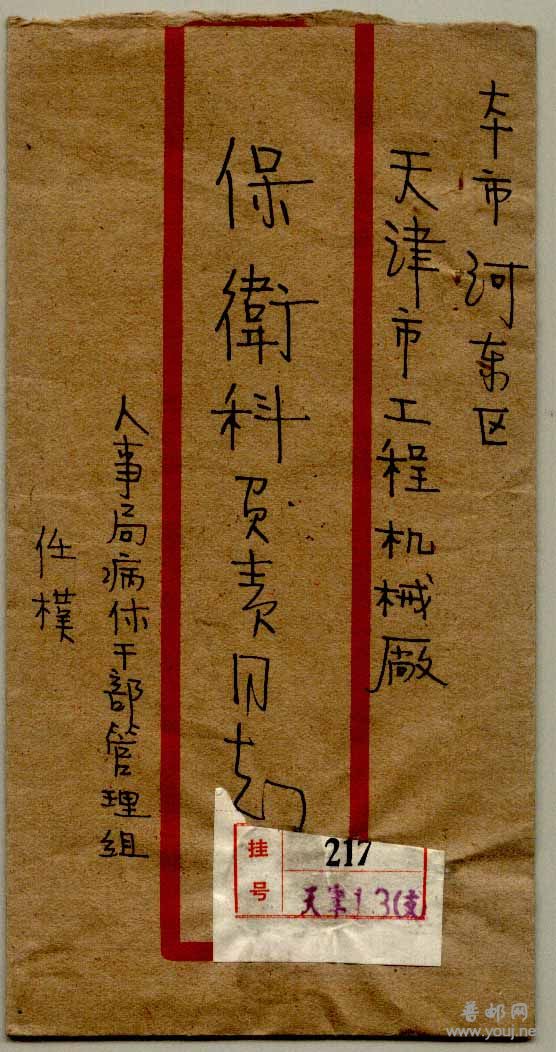 本市河东区
天津市工程机械厰
保衛科负责同志
人事局病休干部管理组
任樸
挂号
217
天津13(支
普邮网
www.youj.net